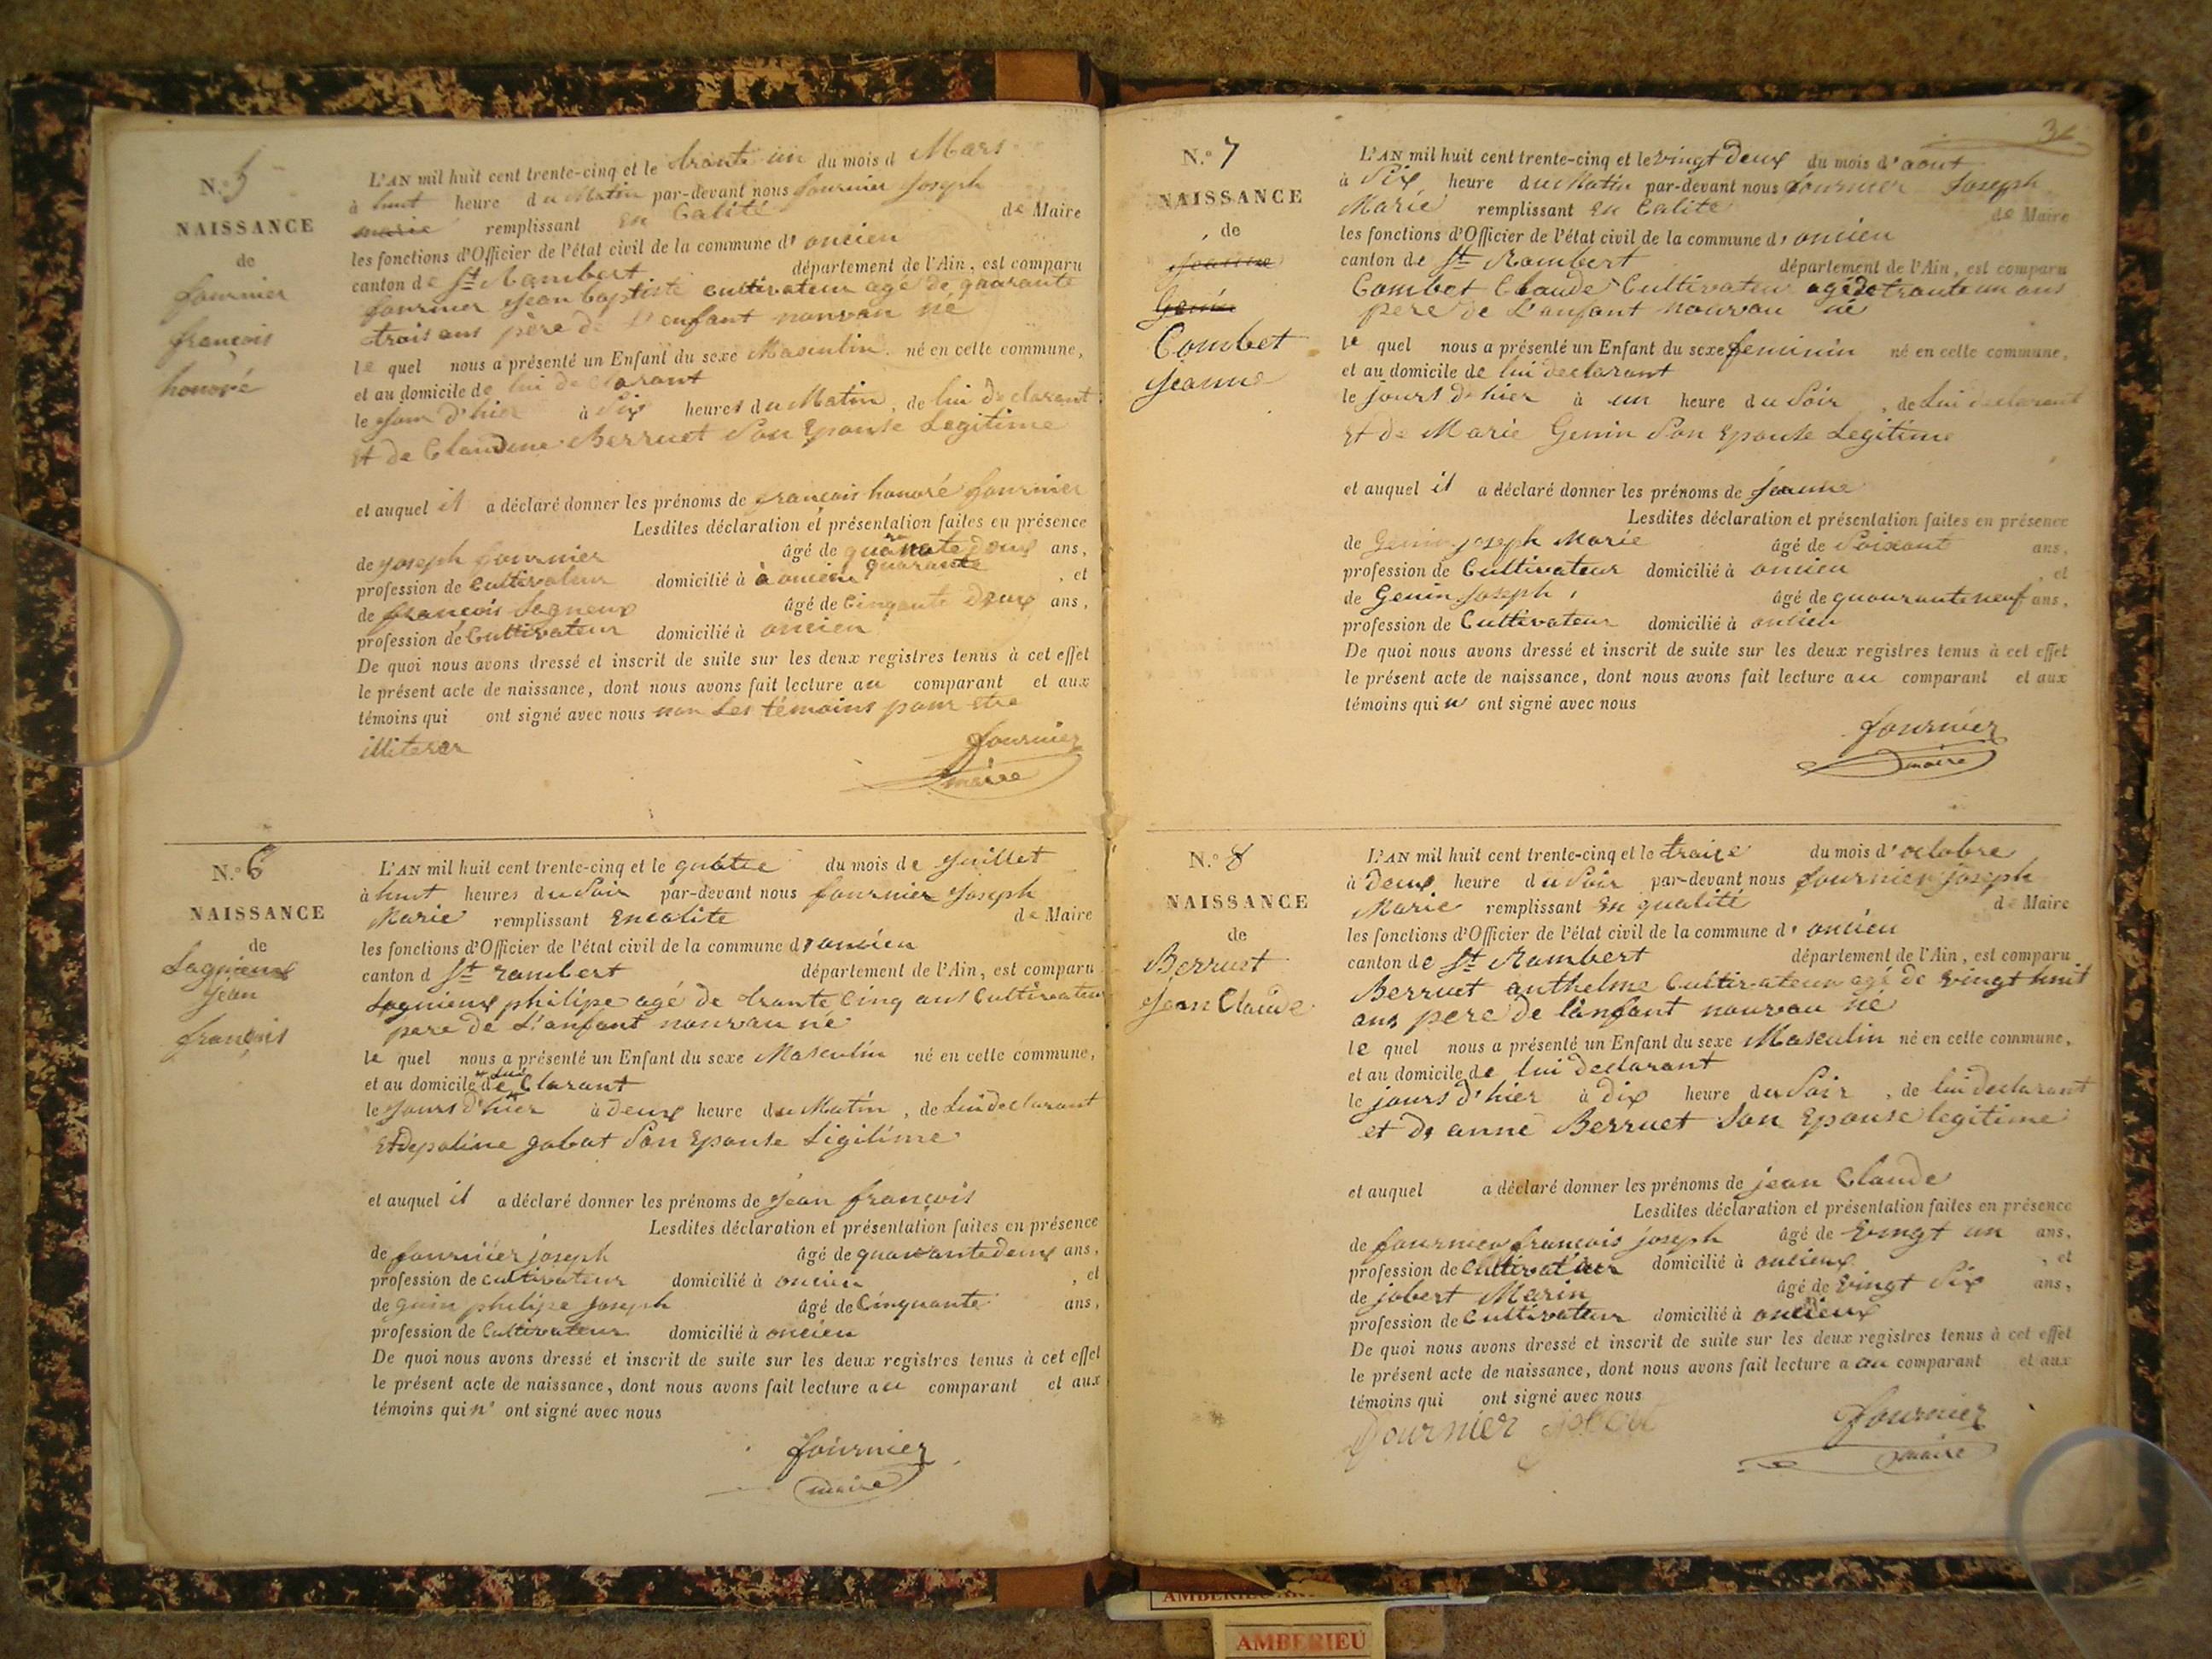 N.º 5
NAISSANCE
de
fournier
francois
honoré
L'AN mil huit cent trente-cinq et le trante un du mois d Mars
à huit heure du Matin par-devant nous fournier Joseph
marie remplissant en Calité de Maire
les fonctions d'Officier de l'état civil de la commune d' oncien
canton de St Rambert département de l'Ain, est comparu
fournier Jean baptiste cultivateur agé de quarante
trois ans père de l'enfant nouvau né
le quel nous a présenté un Enfant du sexe Masculin né en cette commune,
et au domicile de lui declarant
le Jour d'hier à Six heures du Matin, de lui declarant
et de Claudine Berruet Son Epouse Legitime
et auquel il a déclaré donner les prénoms de francois honoré fournier
Lesdites déclaration et présentation faites en présence
de Joseph fournier âgé de quarante deux ans,
profession de Cultivateur domicilié à à oncien quarante, et
de françois Sagneux âgé de Cinqante Deux ans,
profession de Cultivateur domicilié à oncien
De quoi nous avons dressé et inscrit de suite sur les deux registres tenus à cet effet
le présent acte de naissance, dont nous avons fait lecture au comparant et aux
témoins qui ont signé avec nous non Les témoins pour etre
illiterer
fournier
maire
N.º 6
NAISSANCE
de
Sagnieux
Jean
françois
L'AN mil huit cent trente-cinq et le quatre du mois de Juillet
à huit heures du Soir par-devant nous fournier Joseph
Marie remplissant Encalite de Maire
les fonctions d'Officier de l'état civil de la commune d' oncien
canton d St rambert département de l'Ain, est comparu
Sagnieux philipe agé de trante Cinq ans Cultivateur
pere de L'anfant nouvau né
le quel nous a présenté un Enfant du sexe Masculin né en cette commune,
et au domicile de lui Clarant
le Jours d'hier à deux heure du Matin, de Lui declarant
Et de poline gobat Son Epouse Ligitime
et auquel il a déclaré donner les prénoms de Jean françois
Lesdites déclaration et présentation faites en présence
de fournier joseph âgé de quarante deux ans,
profession de cultivateur domicilié à oncien, et
de guin philipe Joseph âgé de Cinquante ans,
profession de Cultivateur domicilié à oncien
De quoi nous avons dressé et inscrit de suite sur les deux registres tenus à cet effet
le présent acte de naissance, dont nous avons fait lecture au comparant et aux
témoins qui n' ont signé avec nous
fournier
maire
N.º 7
NAISSANCE
de
Jeanne
Genin
Combet
Jeanne
L'AN mil huit cent trente-cinq et le vingt deux du mois d'aout
à Six heure du Matin par-devant nous fournier Joseph
Marie remplissant En Calite de Maire
les fonctions d'Officier de l'état civil de la commune d' oncien
canton de St Rambert département de l'Ain, est comparu
Combet Claude Cultivateur agé de trante un ans
pere de L'anfant nouvau né
le quel nous a présenté un Enfant du sexe feminin né en cette commune,
et au domicile de lui declarant
le jours d'hier à un heure du Soir, de Lui declarant
Et de Marie Genin Son Epouse Legitime
et auquel il a déclaré donner les prénoms de Jeanne
Lesdites déclaration et présentation faites en présence
de Genin joseph Marie âgé de Soixant ans,
profession de Cultivateur domicilié à oncien, et
de Genin Joseph, âgé de quauranteneuf ans,
profession de Cultivateur domicilié à oncien
De quoi nous avons dressé et inscrit de suite sur les deux registres tenus à cet effet
le présent acte de naissance, dont nous avons fait lecture au comparant et aux
témoins qui n ont signé avec nous
fournier
maire
N.º 8
NAISSANCE
de
Berruet
Jean Claude
L'AN mil huit cent trente-cinq et le traize du mois d' octobre
à Deux heure du Soir par-devant nous fournier Joseph
Marie remplissant En qualité de Maire
les fonctions d'Officier de l'état civil de la commune d' oncien
canton de St Rambert département de l'Ain, est comparu
Berruet anthelme Cultivateur agé de vingt huit
ans pere de l'anfant nouvau né
le quel nous a présenté un Enfant du sexe Masculin né en cette commune,
et au domicile de lui declarant
le jours d'hier à dix heure du Soir, de lui declarant
et de anne Berruet Son Epouse legitime
et auquel a déclaré donner les prénoms de jean Claude
Lesdites déclaration et présentation faites en présence
de fournier françois joseph âgé de vingt un ans,
profession de Cultivateur domicilié à oncieux, et
de jobert Marin âgé de vingt Six ans,
profession de Cultivateur domicilié à oncieux
De quoi nous avons dressé et inscrit de suite sur les deux registres tenus à cet effet
le présent acte de naissance, dont nous avons fait lecture a au comparant et aux
témoins qui ont signé avec nous
fournier
fournier
maire
AMBERIEU
AMBERIEU